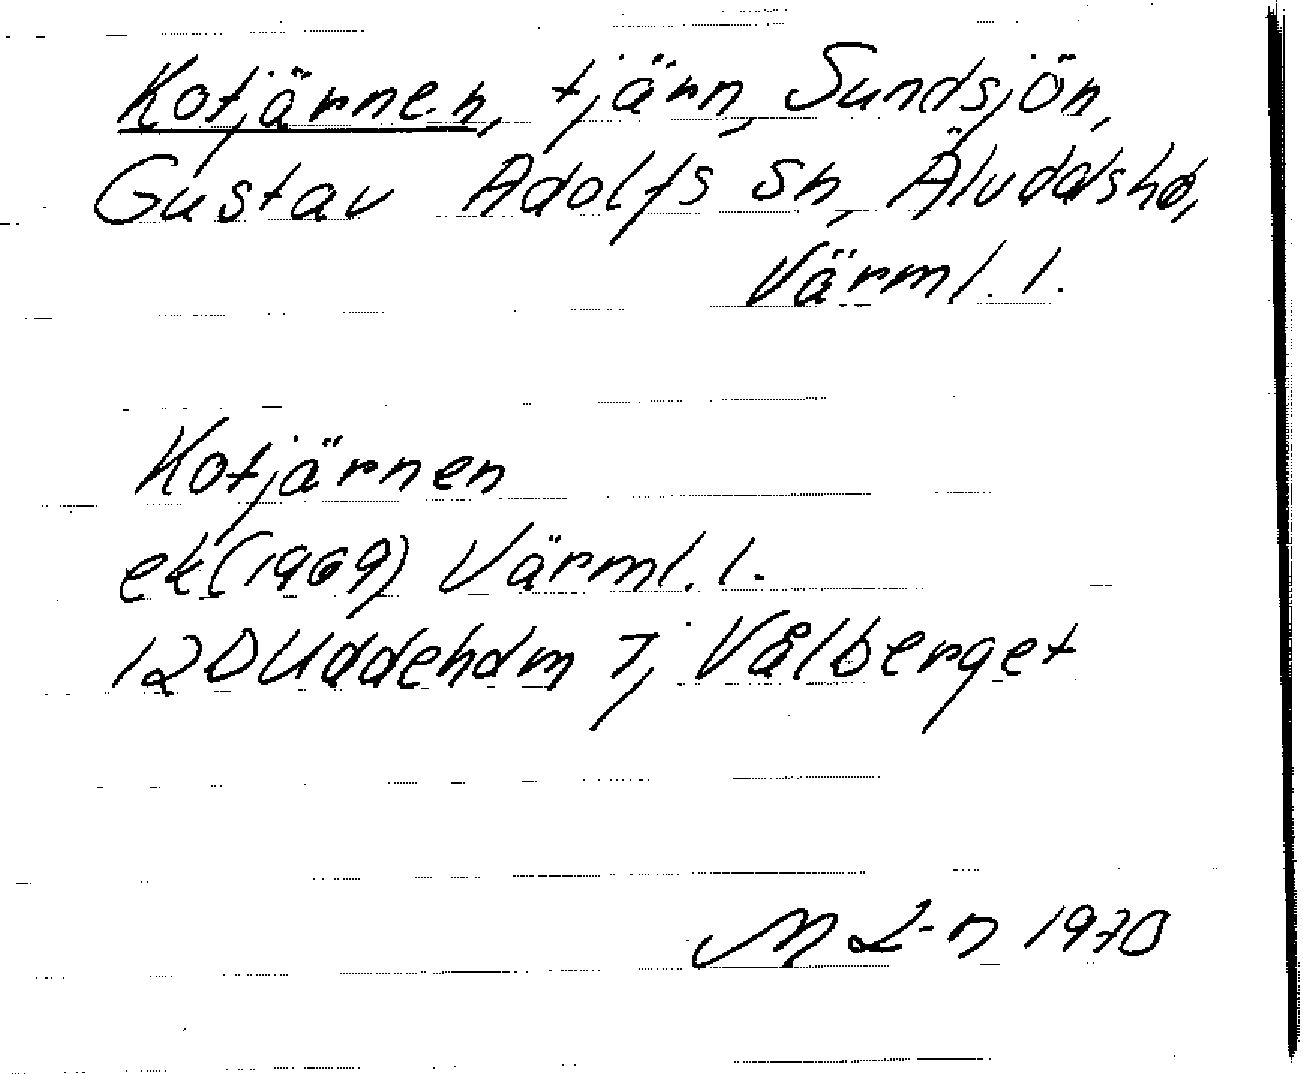 Kotjärnen, tjärn, Sundsjön,
Gustav Adolfs sn, Älvdals hd,
Värml. l.
Kotjärnen
ek (1969) Värml. l.
12D Uddeholm 7j Vålberget
M L-n 1970